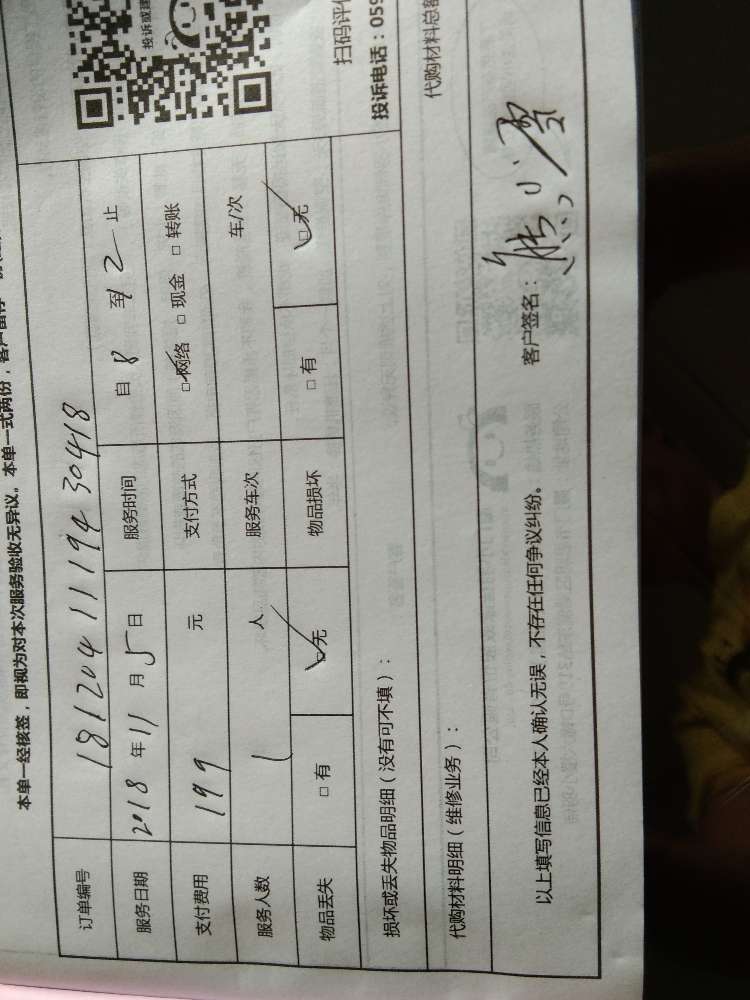 本单一经核签，即视为对本次服务验收无异议。本单一式两份，客户留存一
订单编号 181204111943 0418
服务日期 2018年11月5日 服务时间 自8至12止
支付费用 199 元 支付方式 □网络 □现金 □转账
服务人数 1 人 服务车次 车/次
物品丢失 □有 □无 物品损坏 □有 □无
投诉或建
扫码评价
投诉电话：059
损坏或丢失物品明细（没有可不填）：
代购材料明细（维修业务）： 代购材料总
以上填写信息已经本人确认无误，不存在任何争议纠纷。 客户签名：熊小雪